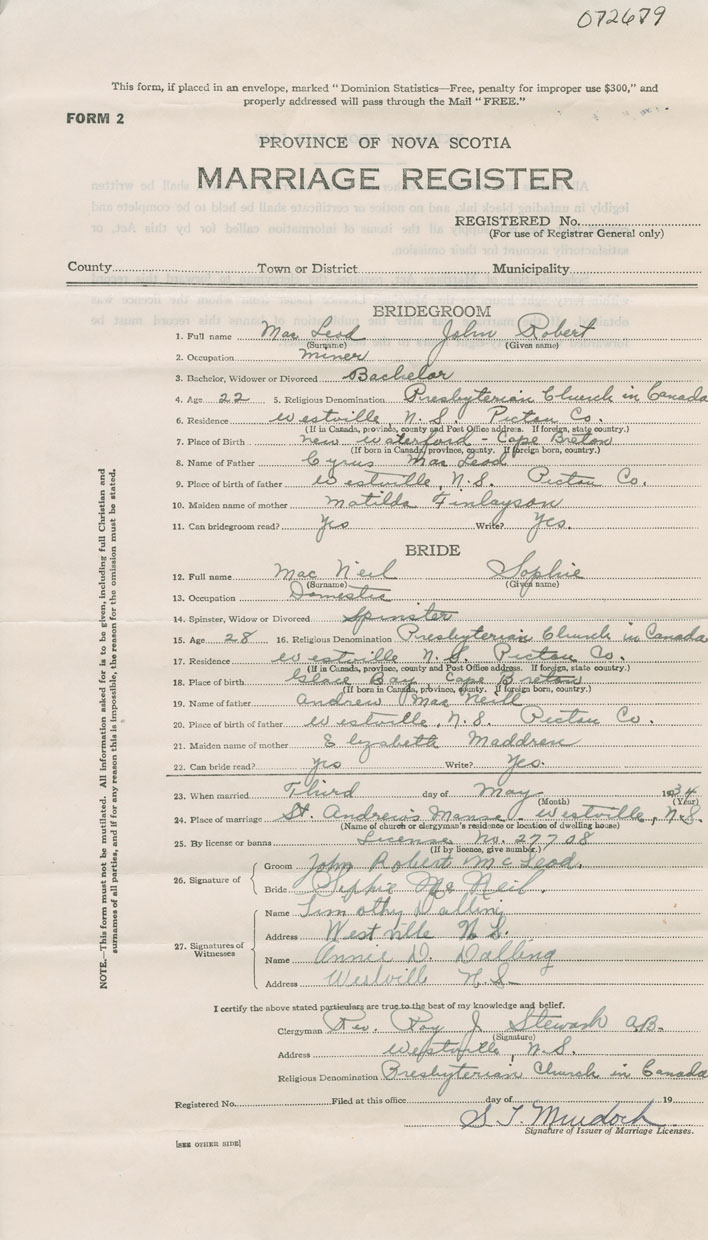 072679
This form, if placed in an envelope, marked "Dominion Statistics—Free, penalty for improper use $300," and
properly addressed will pass through the Mail "FREE."
FORM 2
PROVINCE OF NOVA SCOTIA
MARRIAGE REGISTER
REGISTERED No.
(For use of Registrar General only)
County Town or District Municipality
BRIDEGROOM
1. Full name Mac Leod John Robert
(Surname) (Given name)
2. Occupation miner
3. Bachelor, Widower or Divorced Bachelor
4. Age 22 5. Religious Denomination Presbyterian Church in Canada
6. Residence Westville N.S. Pictou Co.
(If in Canada, province, county and Post Office address. If foreign, state country.)
7. Place of Birth New Waterford - Cape Breton
(If born in Canada, province, county. If foreign born, country.)
8. Name of Father Cyrus Mac Leod
9. Place of birth of father Westville, N.S. Pictou Co.
10. Maiden name of mother Matilda Finlayson
11. Can bridegroom read? Yes Write? Yes.
BRIDE
12. Full name Mac Neil Sophie
(Surname) (Given name)
13. Occupation Domestic
14. Spinster, Widow or Divorced Spinster
15. Age 28 16. Religious Denomination Presbyterian Church in Canada
17. Residence Westville N.S. Pictou Co.
(If in Canada, province, county and Post Office address. If foreign, state country.)
18. Place of birth Glace Bay Cape Breton
(If born in Canada, province, county. If foreign born, country.)
19. Name of father Andrew Mac Neill
20. Place of birth of father Westville, N.S. Pictou Co.
21. Maiden name of mother Elizabeth Maddren
22. Can bride read? Yes Write? Yes.
23. When married Third day of May 1934
(Month) (Year)
24. Place of marriage St. Andrew's Manse - Westville, N.S.
(Name of church or clergyman's residence or location of dwelling house)
25. By license or banns License No. 27708
(If by licence, give number.)
26. Signature of
Groom John Robert McLeod.
Bride Sophie Mc Neil.
27. Signatures of Witnesses
Name Timothy Dalling
Address Westville N.S.
Name Annie D. Dalling
Address Westville N.S.
I certify the above stated particulars are true to the best of my knowledge and belief.
Clergyman Rev. Roy J. Stewart A.B.
(Signature)
Address Westville, N.S.
Religious Denomination Presbyterian Church in Canada
Registered No. Filed at this office day of 19
S. T. Murdoch
Signature of Issuer of Marriage Licenses.
[SEE OTHER SIDE]
NOTE.—This form must not be mutilated. All information asked for is to be given, including full Christian and
surnames of all parties, and if for any reason this is impossible, the reason for the omission must be stated.